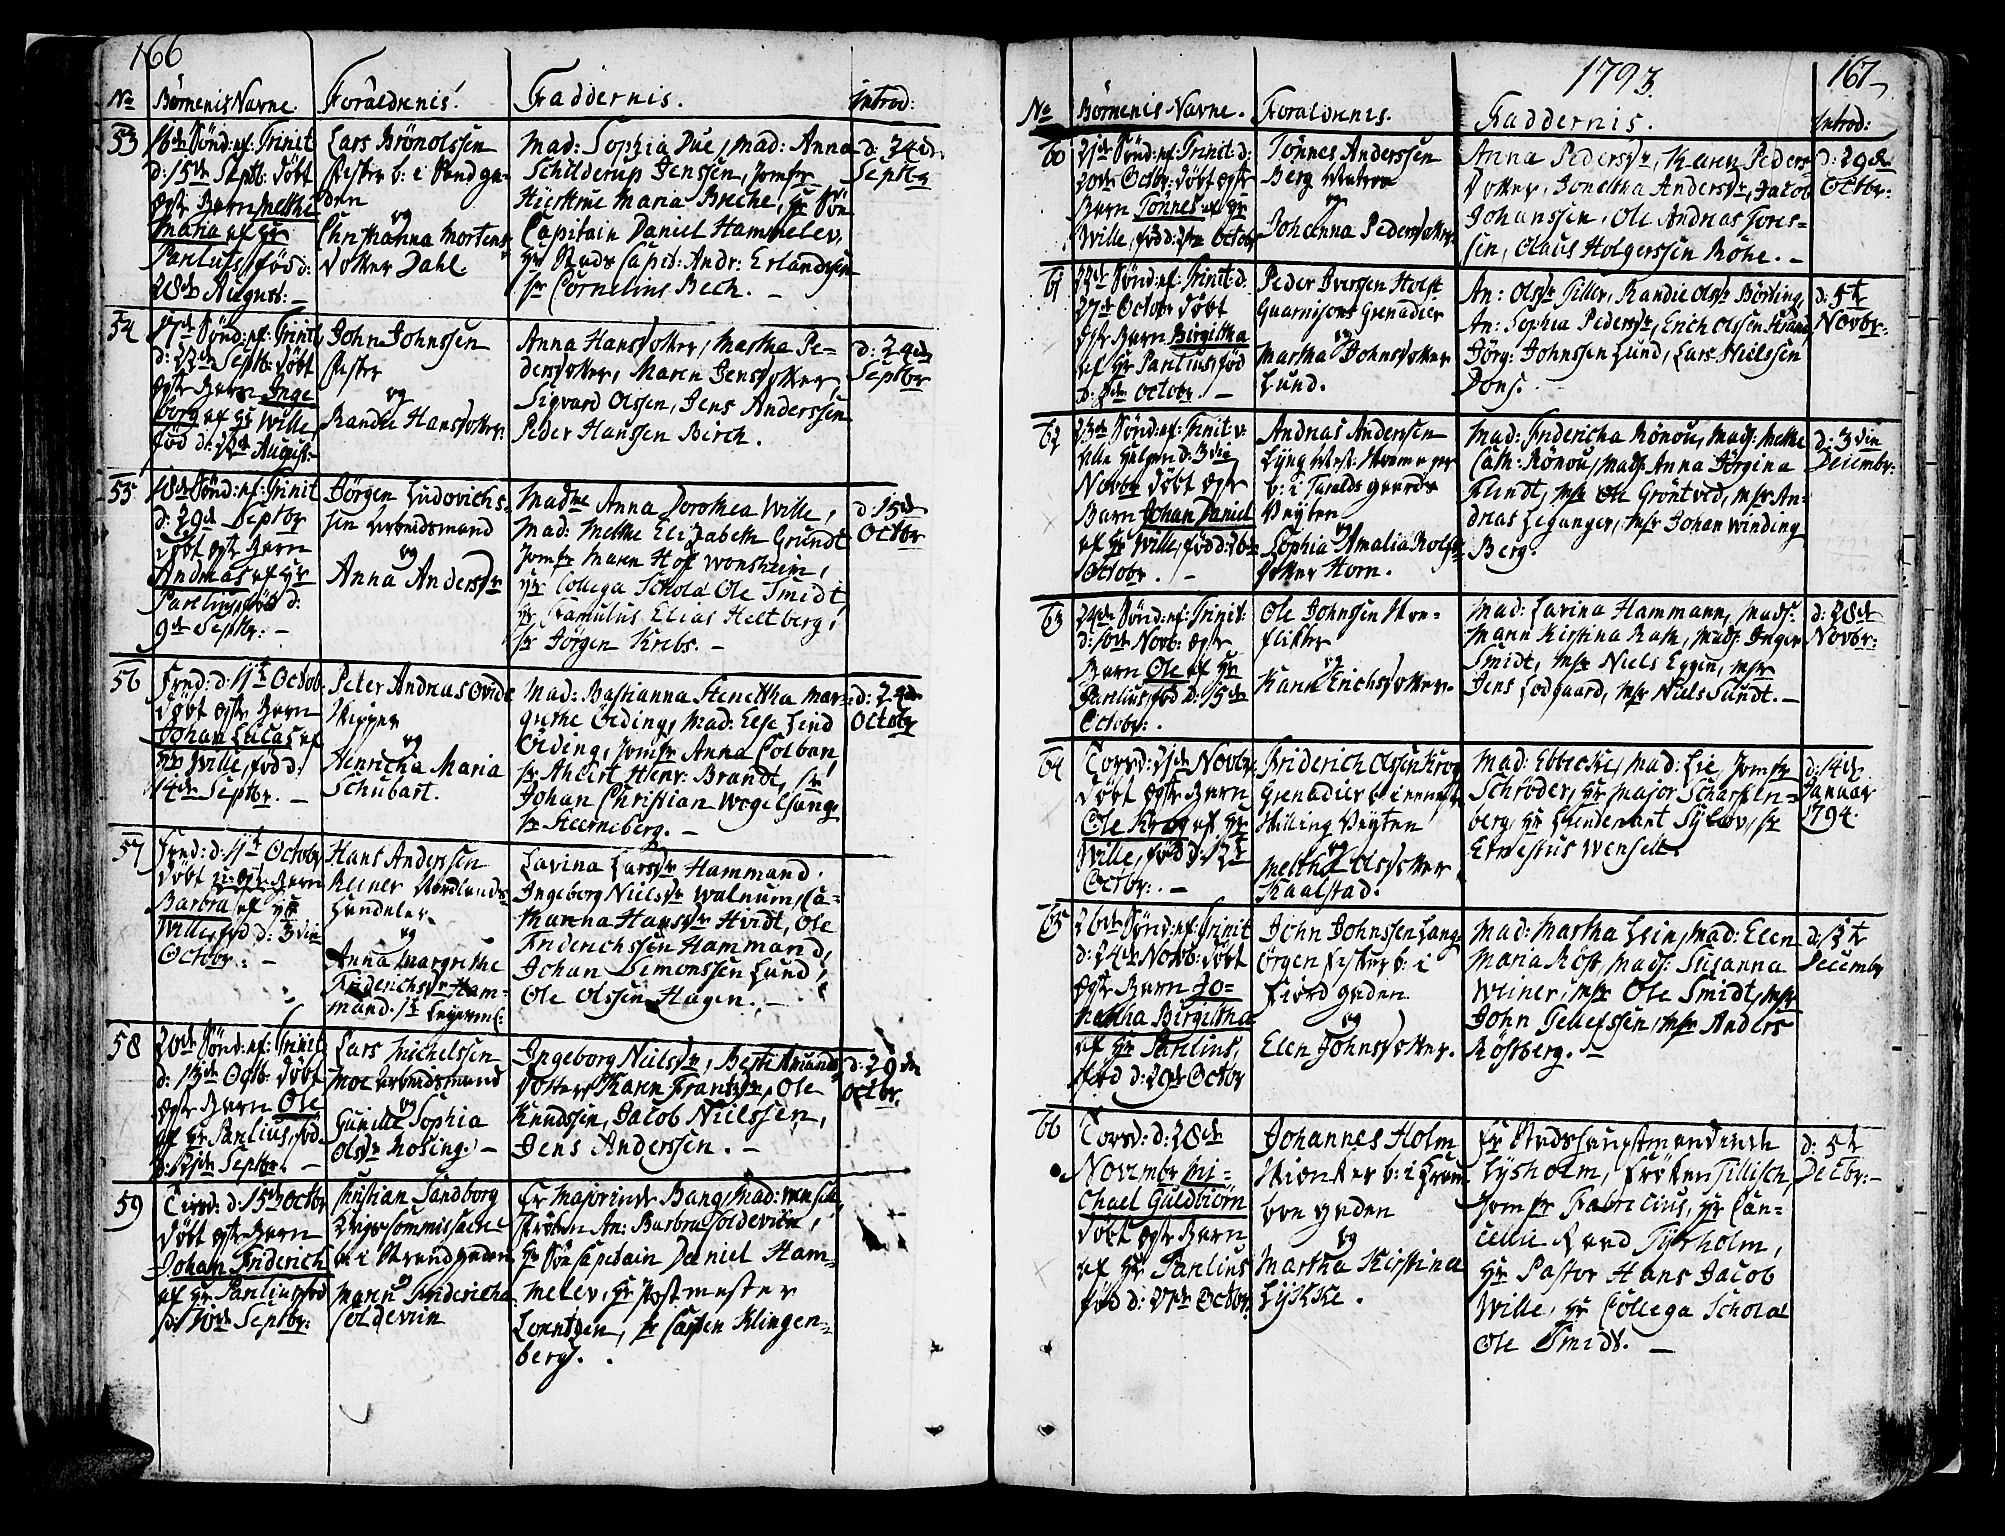 166
No Børnenis Navne. Forældrenis. Faddernis. Introd:
53
16de Sønd: ef: Trinit
d: 15de Septb: døbt
ægte Barn Mette
Maria af Hr
Parelius, fød d:
28de August: —
Lars Brønolssen
Fisker b: i Sandga-
den
og
Christianna Mortens-
dotter Dahl.
Mad: Sophia Due, Mad: Anna
Schilderup Jenssen, Jomfr
Maria Breche, Hr Søe
Capitain Daniel Hammelev,
Hr Stads Capit: Andr: Erlandsen
Sr Cornelius Bech. —
d: 24de
Septbr
54
17de Sønd: ef: Trinit
d: 22de Septb: døbt
ægte Barn Inge
borg af Hr Wille
fød d: 22de August:—
John Johnssen
Fisker
og
Randie Hansdotter.
Anna Hansdotter, Martha Pe-
dersdotter, Maren Jensdotter,
Sigvard Olssen, Jens Anderssen
Peder Hanssen Birch.
d: 24de
Septbr
55
18de Sønd: ef: Trinit
d: 29de Septbr
døbt ægte Barn
Andreas af Hr
Parelius, fød d:
9de Septbr: —
Jørgen Ludovichs-
sen Arbeidsmand
og
Anna Andersdr
Madme Anna Dorothea Wille,
Mad: Mette Elizabeth Grundt
Jomfr Maren Hof Wonsheim,
Hr Collega Schola Ole Smidt,
Hr Famulus Elias Heltberg,
Sr Jørgen Krebs. —
d: 15de
Octbr
56
Fred: d: 11te Octob:
døbt ægte Barn
Johan Lucas af
Hr Wille, fød d:
14de Septbr. —
Peter Andreas
Skipper
og
Henricha Maria
Schubart.
Mad: Bastianna Stenettha Mar-
grethe Öeding, Mad: Else Lind
Öeding, Jomfr Anna Colban,
Sr Ahlert Henr: Brandt, Sr
Johan Christian Wogelsang,
Sr Steerneberg. —
d: 24de
Octobr
57
Fred: d: 11te Octobr
døbt Barn
Barbra af Hr
Wille, fød d: 3die
Octobr: —
Hans Anderssen
Reiner Nordlands
Handeler.
og
Anna Margrethe
Friderichsdr Ham-
mand.
Lavina Larsdr Hammand.
Ingeborg Nielsdr Walnum, Ca-
tharina Hansdr Hvidt, Ole
Friderichssen Hammand,
Johan Simonssen Lund,
Ole Olssen Hagen. —
58
20de Sønd: ef: Trinit
d: 13de Octb: døbt
ægte Barn Ole
af Hr Parelius, fød
d: 12de Septbr. —
Lars Michelssen
Moe Arbeidsmand
og
Gunild Sophia
Olsdr Mosing. —
Ingeborg Nielsdr, Berit Amunds
dotter, Karen Frantzdr, Ole
Knudssen, Jacob Nielssen,
Jens Anderssen. —
d: 29de
Octbr.
59
Tirsd: d: 15de Octbr
døbt ægte Barn
Johan Friderich
af Hr Parelius, fød
d: 10de Septbr:
Christian Sandborg
Krigscommissaire
b: i Strandgaden
og
Maren Fridericha
Coldevin
Fr Majorinde Bang, Mad: Wensell,
Frøken An: Barbra Coldevin,
Hr Søe Capitain Daniel Ham-
melev, Hr Postmester
Lorentzen, Sr Casten Klingen-
berg. .
1793. 167
No Børnenis Navne. Forældrenis. Faddernis. Introd:
60
21de Sønd: ef: Trinit: d:
20de Octbr: døbt ægte
Barn Tönnes af Hr
Wille, fød d: 2den Octobr
Tönnes Anderssen
Berg Matros
og
Johanna Pedersdotter
Anna Pedersdr, Karen Peders
dotter, Jonettha Andersdr, Jacob
Johanssen, Ole Andreas Tores-
sen, Claus Holgerssen Röhe. —
d: 29de
Octbr:
61
22de Sønd: ef: Trinit: d:
27de Octobr døbt
ægte Barn Birgittha
af Hr Parelius, fød
d: 8de Octobr. —
Peder Iversen Holst
Guarnisons Grenadier
og
Martha Johnsdotter
Lund.
An: Olsdr Tiller, Randie Olsdr Børling,
An: Sophia Pedersdr, Erich Olssen Strand,
Jörg: Johnssen Lund, Lars Nielssen
Dons.
d: 5te
Novbr:
62
23de Sønd: ef: Trinit v:
Alle Helgen d: 3die
Novbr døbt ægte
Barn Johan Daniel
af Hr Wille, fød d: 26de
Octobr. —
Andreas Anderssen
Lyng
b: i Taralds gaards
Veyten
og
Sophia Amalia Rolfs-
dotter Horn.
Mad: Fridericha Rönou, Mads: Mette
Cath: Rönou, Mads: Anna Jörgina
Flindt, Msr Ole Gröntved, Msr An-
dreas Leganger, Msr Johan Winding
Berg.
d: 3die
Decembr:
63
24de Sønd: ef: Trinit:
d: 10de Novb: ægte
Barn Ole af Hr
Parelius, fød d: 15de
Octobr: .
Ole Johnssen Skoe-
flikker
og
Karen Erichsdotter.
Mad: Lavina Hammann, Mads:
Maren Kirstina Rask, Mads: Inger
Smidt, Msr Niels Eggen, Msr
Jens Lodgaard, Msr Niels Sundt. —
d: 28de
Novbr:
64
Torsd: 21de Novbr:
døbt ægte Barn
Ole Krog af Hr
Wille, fød d: 12te
Octbr: . —
Friderich Olssen Krog
Grenadier b:
Skilling Veyten
og
Mettha Olsdotter
Kaalstad.
Mad: Ebbecke, Mad: Lie, Jomfr
Schröder, Hr Major Scharfen-
berg, Hr Leutenant Sylow, Sr
Ernestus Wensell.
d: 14de
Januar
1794.
65
26de Sønd: ef: Trinit
d: 24de Novb: døbt
ægte Barn Jo-
nettha Birgittha
af Hr Parelius,
fød d: 29de Octobr
John Johnssen Lang-
örgen Fisker b: i
Fiordgaden
og
Elen Johnsdotter.
Mad: Martha Lein, Mad: Elen
Maria Röst, Mads: Susanna
Weiner, Msr Ole Smidt, Msr
John Tellefssen, Msr Anders
Röstberg. —
d: 13te
Decembr
66
Torsd: d: 28de
Novembr Mi-
chael Guldbiörn
døbt ægte Barn
af Hr Parelius
fød d: 27de Octobr.
Johannes Holm
b: i Grau-
bøe gaden
og
Martha Kirstina
Lykke.
Fr Stadshauptmandinde
Lysholm, Frøken Tillisch,
Jomfr Fabricius, Hr Can-
cellie Raad Tyrholm,
Hr Pastor Hans Jacob
Wille, Hr Collega Scholæ
Ole Smidt. —
d: 5te
Decbr: —